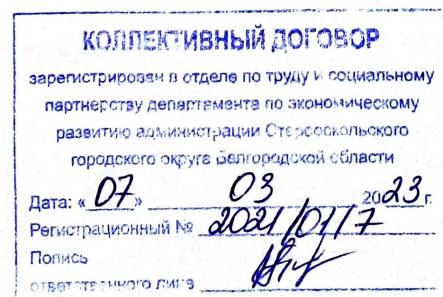 КОЛЛЕКТИВНЫЙ ДОГОВОР
зарегистрирован в отделе по труду и социальному
партнерству департамента по экономическому
развитию администрации Старооскольского
городского округа Белгородской области
Дата: «07» 03 2023 г.
Регистрационный № 2021/01/7
Попись
ответственного лица